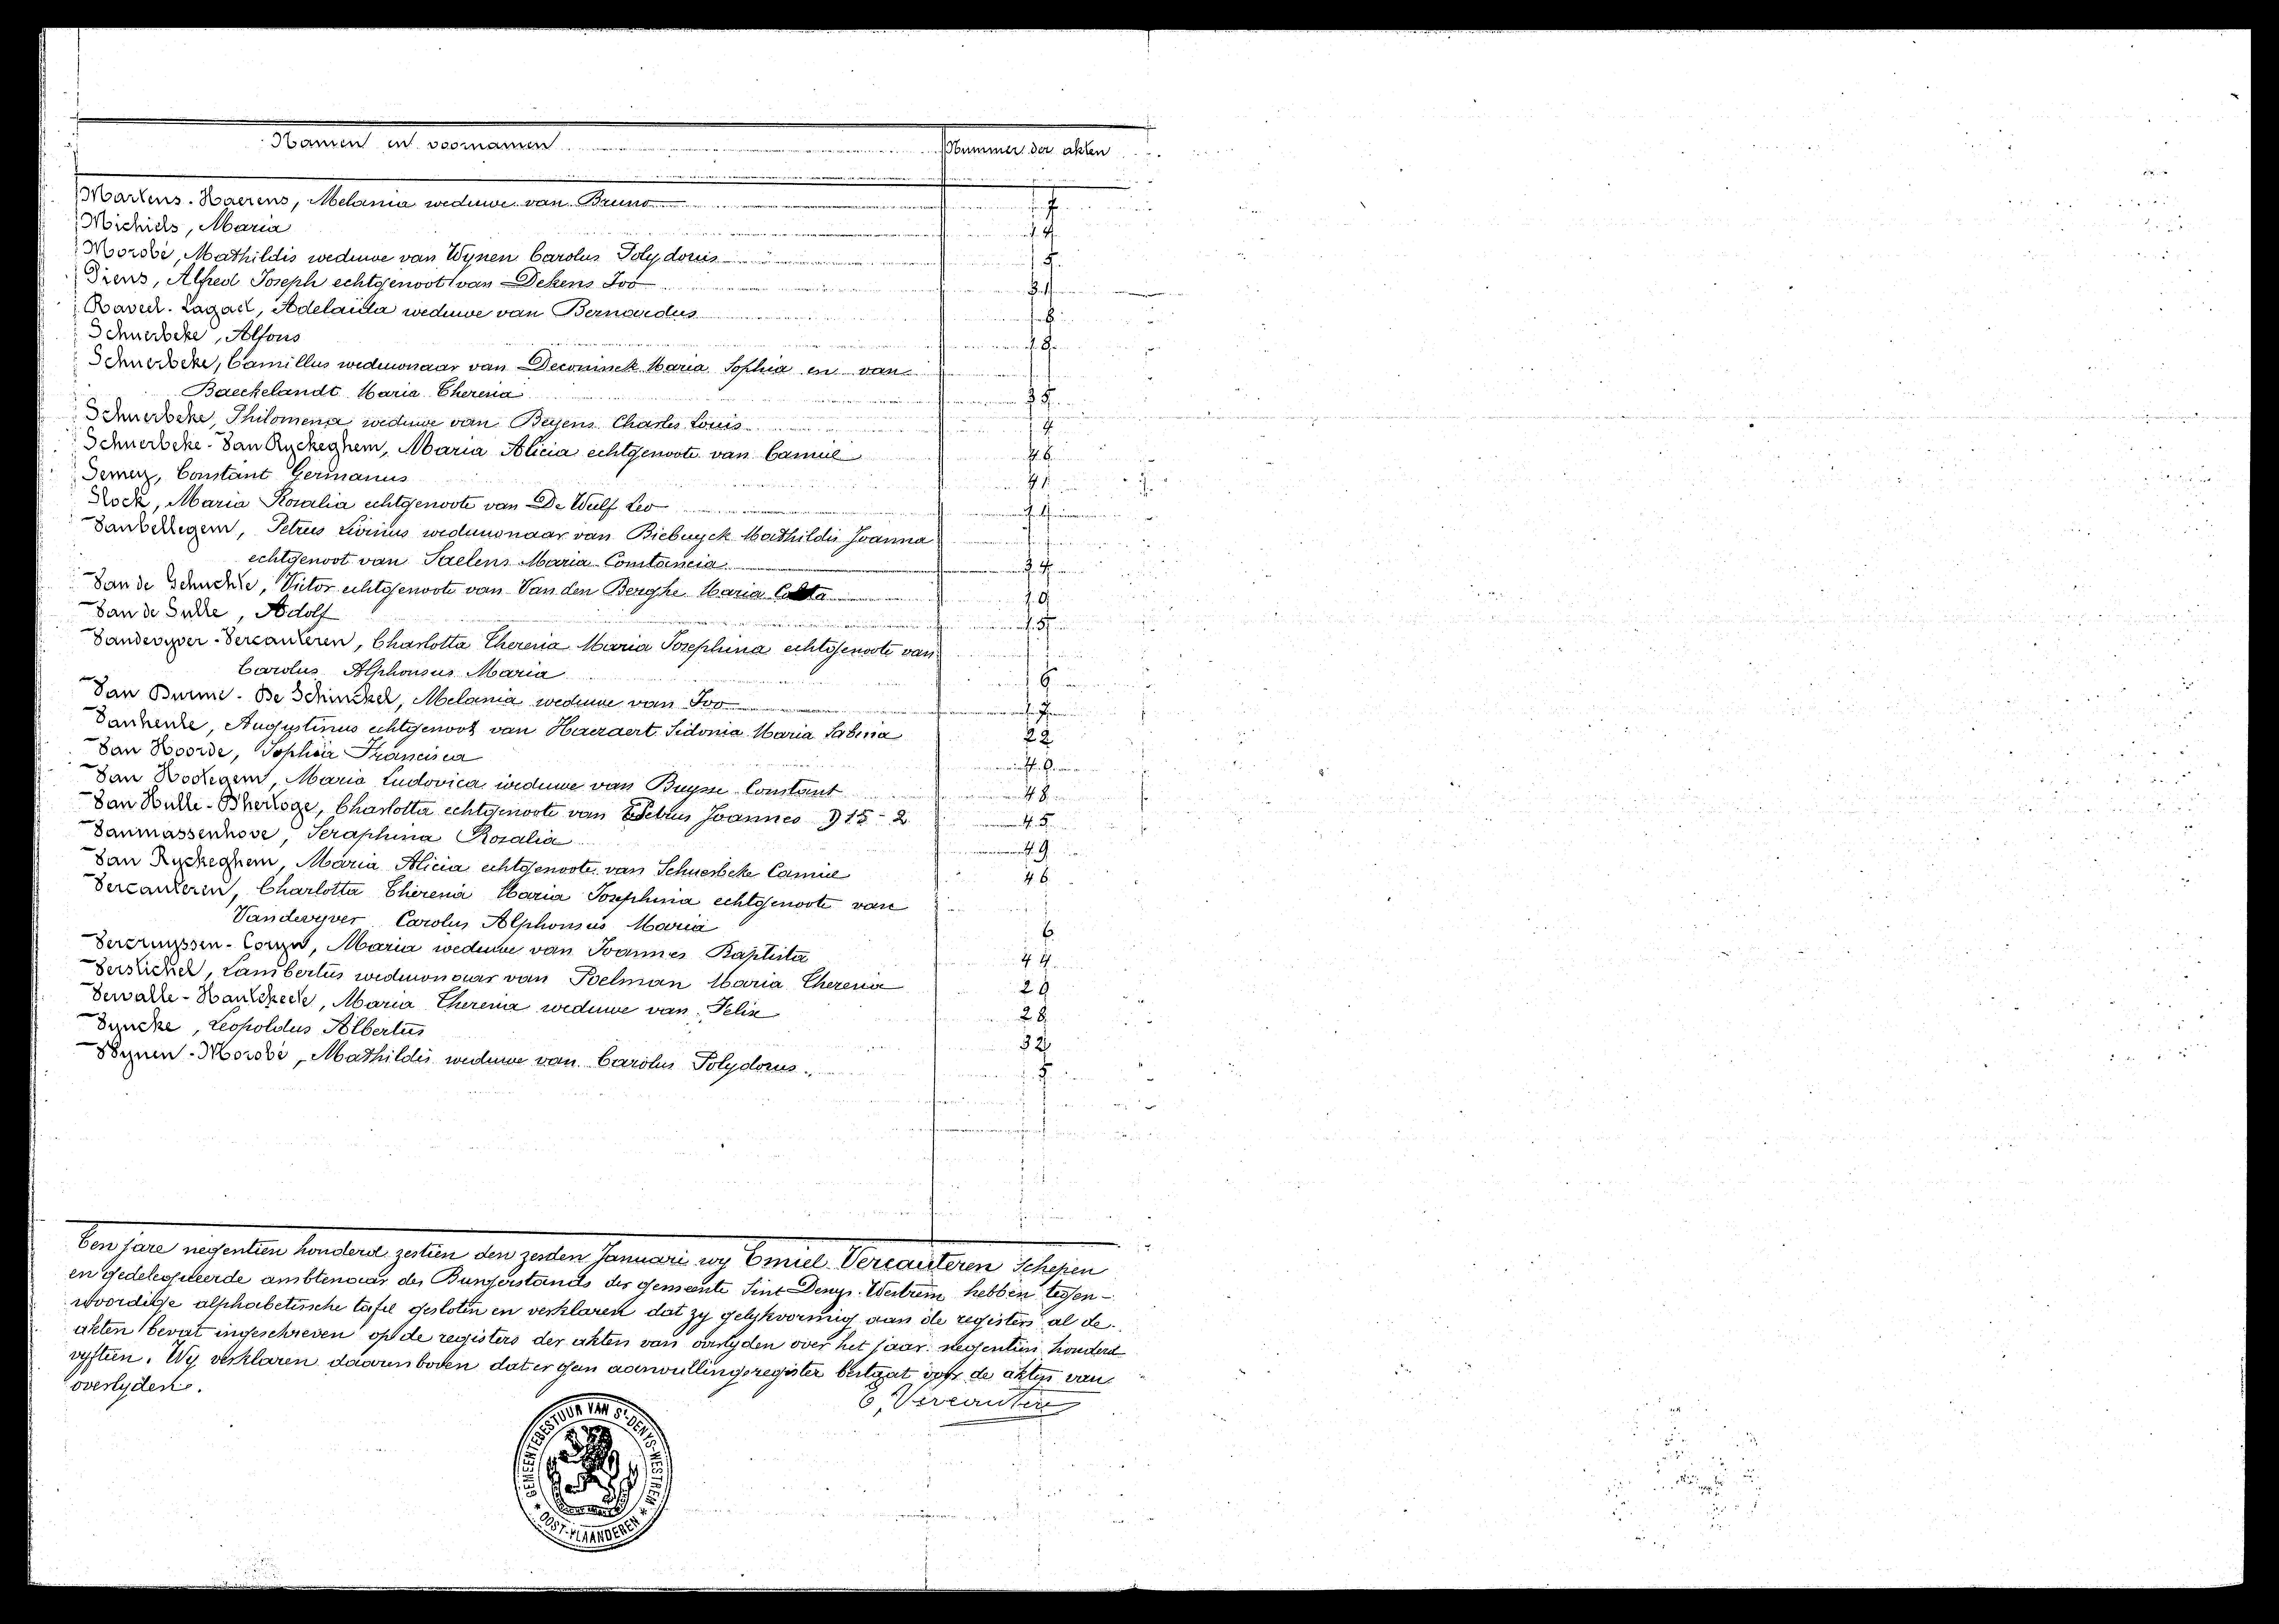 Namen en voornamen Nummer der akten
Martens-Haerens, Melania weduwe van Bruno 7
Michiels, Maria 14
Morobé, Mathildis weduwe van Wynen Carolus Polydorus 5
Piens, Alfred Joseph echtgenoot van Dekens Ivo
Raveel-Lagael, Adelaida weduwe van Bernardus 8
Schuerbeke, Alfons
Schuerbeke, Camillus weduwnaar van Deconinck Maria Sophia en van
Baeckelandt Maria Theresia 35
Schuerbeke, Philomena weduwe van Beyens Charles Louis
Schuerbeke-Van Ryckeghem, Maria Alicia echtgenoote van Camiel 46
Semey, Constant Germanus 41
Stock, Maria Rosalia echtgenoote van De Wulf Leo
Vanbellegem, Petrus Livinus weduwnaar van Biebuyck Mathildis Joanna
echtgenoot van Saelens Maria Constancia 34
Van de Gehuchte, Victor echtgenoote van Van den Berghe Maria
Van de Sulle, Adolf
Vandevyver-Vercauteren, Charlotta Theresia Maria Josephina echtgenoote van
Carolus Alphonsus Maria 6
Van Durme-De Schinckel, Melania weduwe van Ivo
Vanhecke, Augustinus echtgenoot van Haeraert Sidonia Maria Sabina 22
Van Hoorde, Sophia Francisca
Van Hootegem, Maria Ludovica weduwe van Buysse Constant 48
Van Hulle-D'hertoge, Charlotta echtgenoote van Petrus Joannes D 15-2 45
Vanmassenhove, Seraphina Rosalia 49
Van Ryckeghem, Maria Alicia echtgenoote van Schuerbeke Camiel 46
Vercauteren, Charlotta Theresia Maria Josephina echtgenoote van
Vandevyver Carolus Alphonsus Maria 6
Vercruyssen-Coryn, Maria weduwe van Joannes Baptista 44
Verstichel, Lambertus weduwnaar van Poelman Maria Theresia 29
Vervalle-Hautekeete, Maria Theresia weduwe van Felix 28
Vyncke, Leopoldus Albertus 32
Wynen-Morobé, Mathildis weduwe van Carolus Polydorus 5
Ten jare negentien honderd zestien den zesden Januari wy Emiel Vercauteren Schepen
en gedelegueerde ambtenaar des Burgerstands der gemeente Sint Denys-Westrem hebben tegen-
woordige alphabetische tafel gesloten en verklaren dat zy gelykvormig aan de registers al de
akten bevat ingeschreven op de registers der akten van overlyden over het jaar negentien honderd
vyftien. Wy verklaren daarenboven dat er geen aanvullingsregister bestaat voor de akten van
overlyden.
E. Vercauteren
GEMEENTEBESTUUR VAN St-DENYS-WESTREM
* OOST-VLAANDEREN *